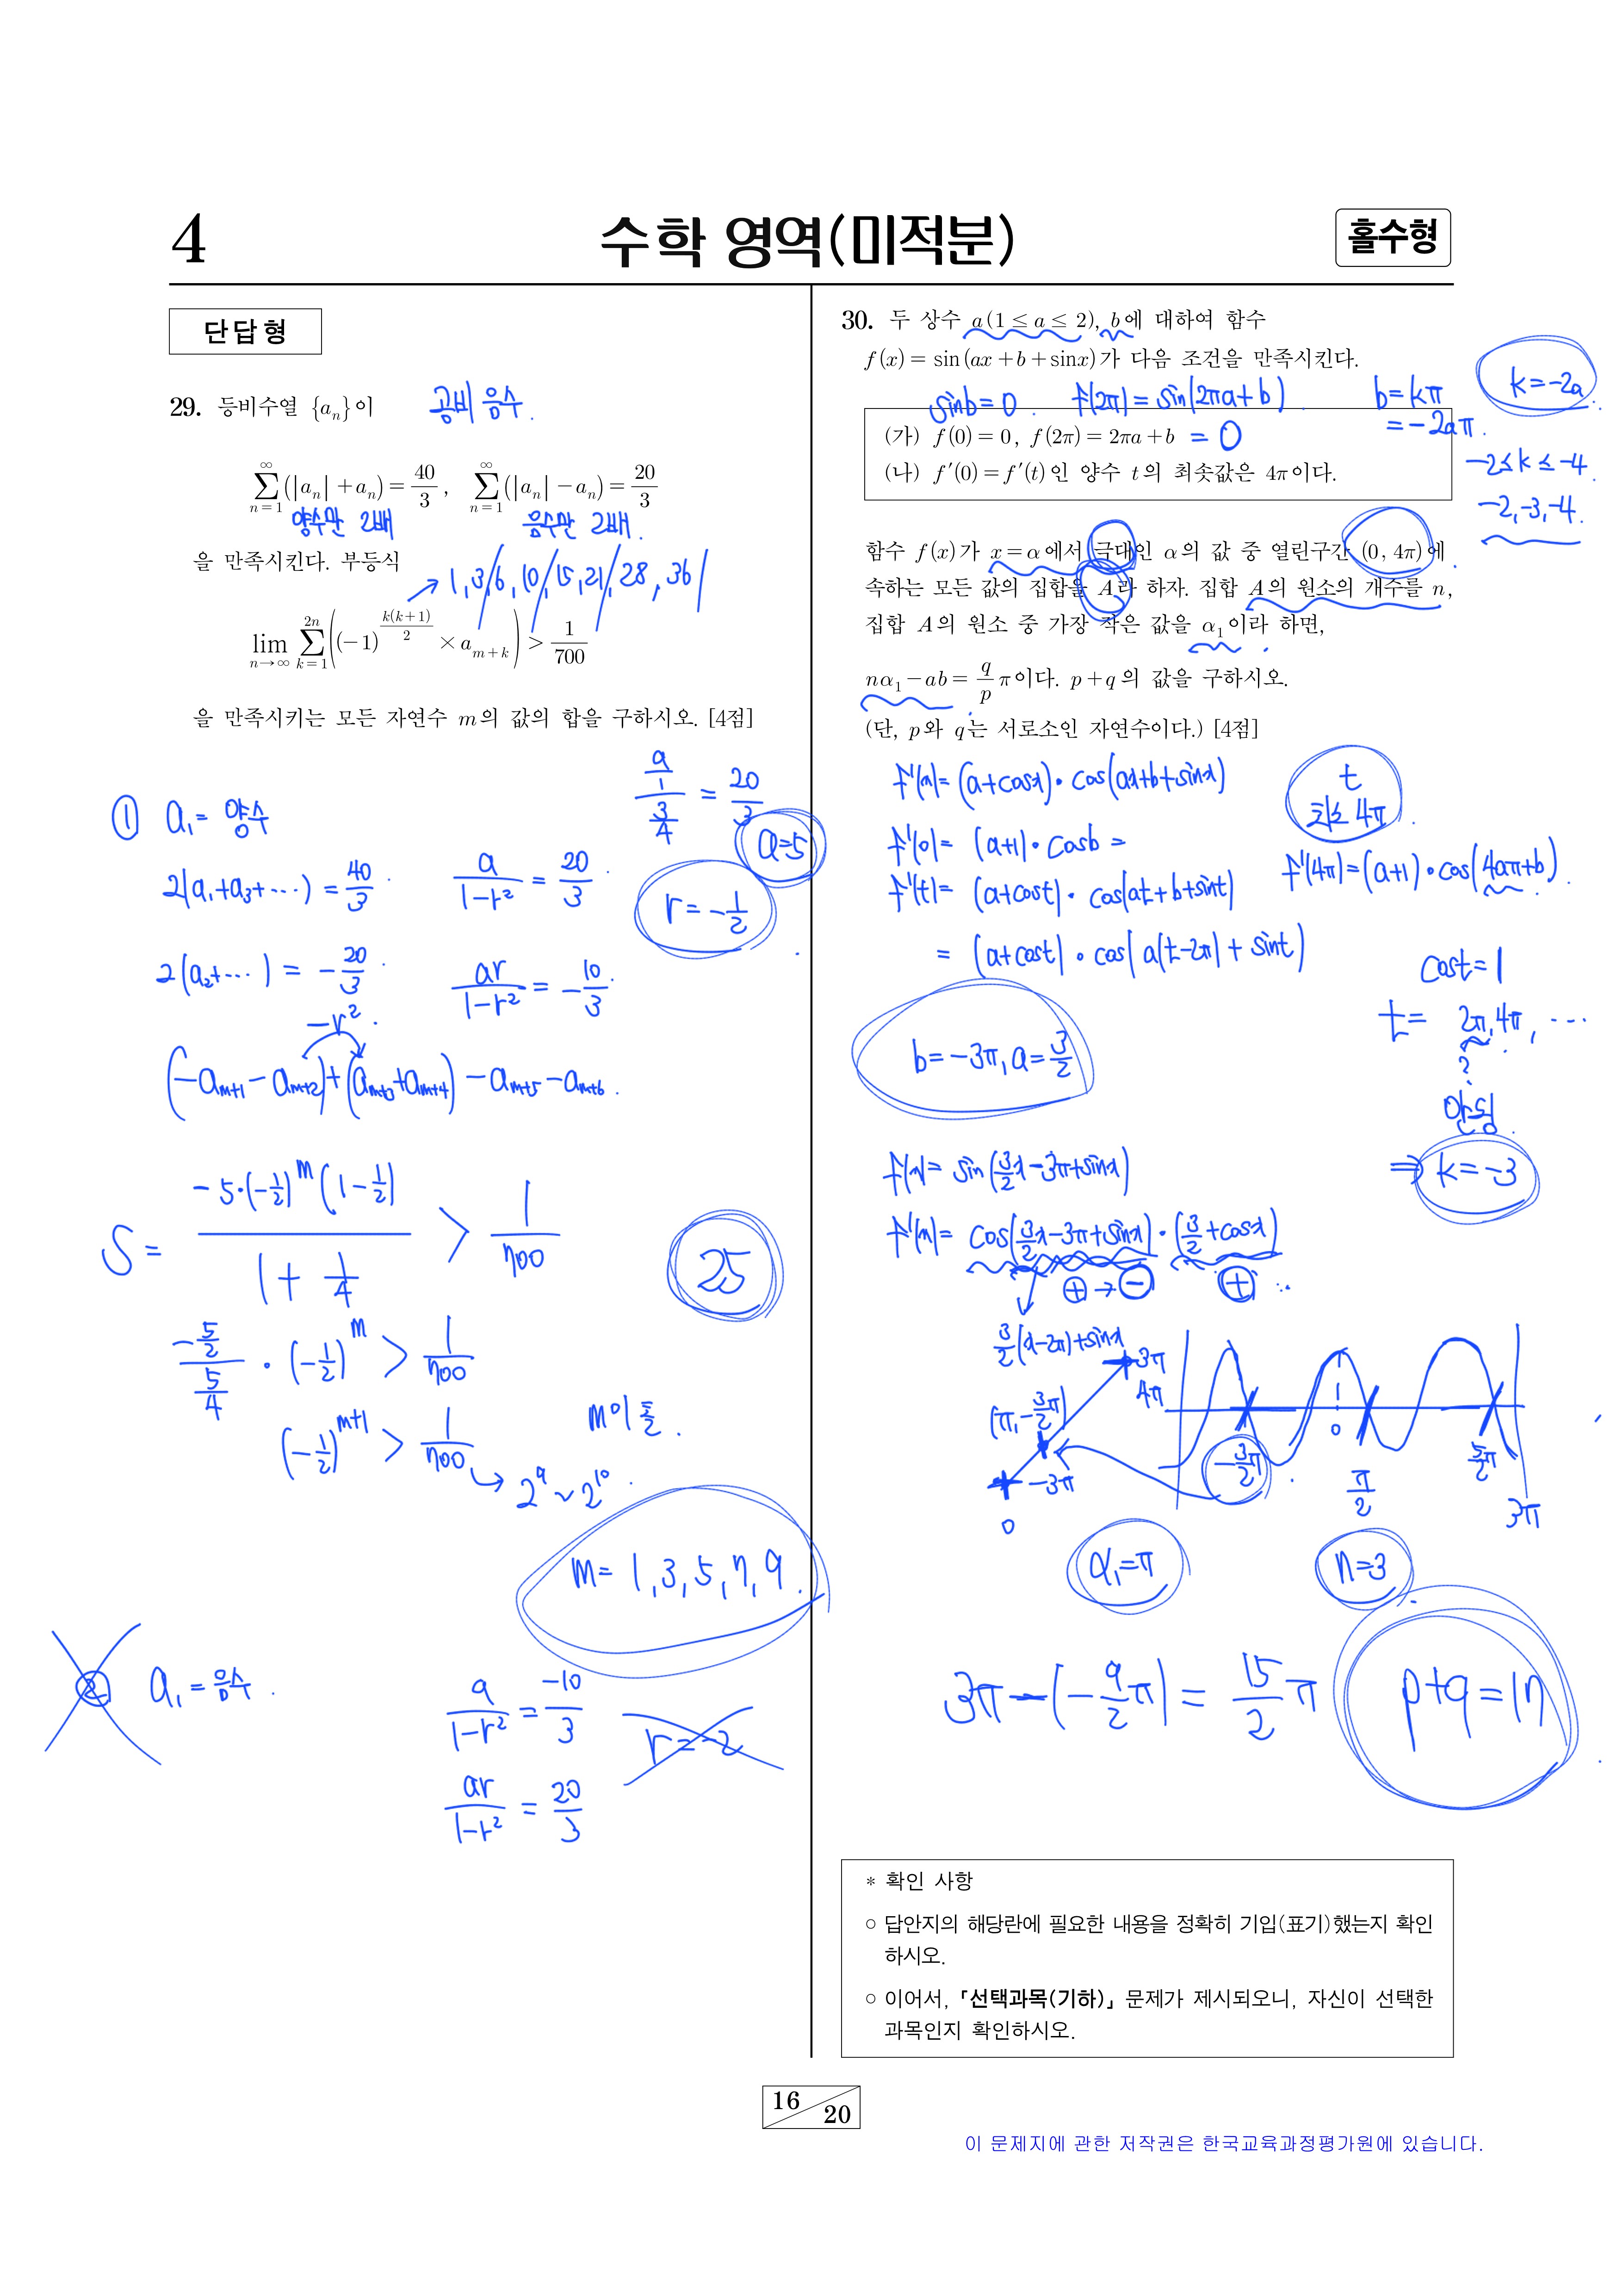 4
수학 영역(미적분)
홀수형
단답형
29. 등비수열 {a_n}이
공비 음수.
∑_{n=1}^{∞}(|a_n|+a_n)=40/3, ∑_{n=1}^{∞}(|a_n|-a_n)=20/3
양수만 2배 음수만 2배.
을 만족시킨다. 부등식
→ 1,3/6,10/15,21/28,36/
lim_{n→∞} ∑_{k=1}^{2n}((-1)^{k(k+1)/2} × a_{m+k}) > 1/700
을 만족시키는 모든 자연수 m의 값의 합을 구하시오. [4점]
① a₁= 양수
2(a₁+a₃+⋯)=40/3. a/(1-r²)=20/3.
(a/1)/(3/4)=20/3
a=5
r=-1/2
2(a₂+⋯)=-20/3. ar/(1-r²)=-10/3.
-r².
(-a_{m+1}-a_{m+2})+(a_{m+3}+a_{m+4})-a_{m+5}-a_{m+6}.
S= -5·(-1/2)^m(1-1/2)/(1+1/4) > 1/700
25
(-5/2)/(5/4)·(-1/2)^m > 1/700
(-1/2)^{m+1} > 1/700
m이 홀.
→ 2⁹~2¹⁰.
m=1,3,5,7,9.
② a₁=음수.
a/(1-r²)=-10/3
r=-2
ar/(1-r²)=20/3
30. 두 상수 a(1≤a≤2), b에 대하여 함수
f(x)=sin(ax+b+sinx)가 다음 조건을 만족시킨다.
sinb=0. f(2π)=sin(2πa+b). b=kπ
=-2aπ.
k=-2a.
(가) f(0)=0, f(2π)=2πa+b =0
(나) f′(0)=f′(t)인 양수 t의 최솟값은 4π이다.
-2≤k≤-4
-2,-3,-4.
함수 f(x)가 x=α에서 극대인 α의 값 중 열린구간 (0, 4π)에
속하는 모든 값의 집합을 A라 하자. 집합 A의 원소의 개수를 n,
집합 A의 원소 중 가장 작은 값을 α₁이라 하면,
nα₁-ab=q/p π이다. p+q의 값을 구하시오.
(단, p와 q는 서로소인 자연수이다.) [4점]
f'(x)=(a+cosx)·cos(ax+b+sinx)
t
최소 4π.
f'(0)=(a+1)·cosb=
f'(t)=(a+cost)·cos(at+b+sint)
f'(4π)=(a+1)·cos(4aπ+b).
=(a+cost)·cos(a(t-2π)+sint)
cost=1
t= 2π,4π,⋯
?
안됨.
⇒ k=-3
b=-3π, a=3/2
f(x)=sin(3/2x-3π+sinx)
f'(x)=cos(3/2x-3π+sinx)·(3/2+cosx)
⊕→⊖ ⊕
3/2(x-2π)+sinx
3π
4π
(π,-3/2π)
-3π
0
-3/2π. 0 π/2 5/2π 3π
α₁=π
n=3
3π-(-9/2π)=15/2π
p+q=17
* 확인 사항
○ 답안지의 해당란에 필요한 내용을 정확히 기입(표기)했는지 확인
하시오.
○ 이어서, 「선택과목(기하)」 문제가 제시되오니, 자신이 선택한
과목인지 확인하시오.
16
20
이 문제지에 관한 저작권은 한국교육과정평가원에 있습니다.